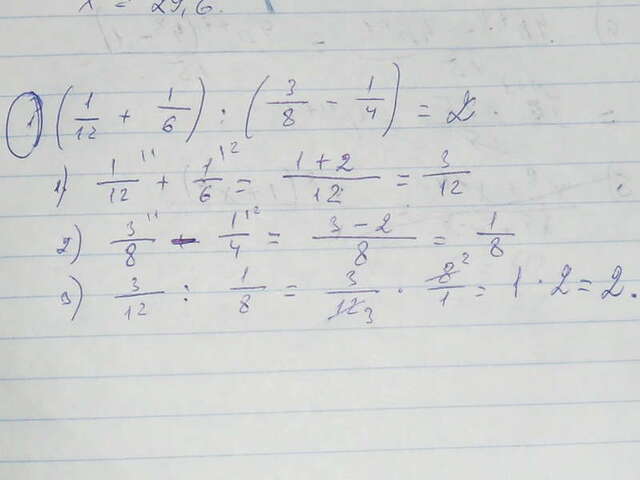 x = 29,6.
1) (1/12 + 1/6) : (3/8 - 1/4) = 2.
1) 1/12 ¹ + 1/6 ² = (1+2)/12 = 3/12
2) 3/8 ¹ - 1/4 ² = (3-2)/8 = 1/8
3) 3/12 : 1/8 = 3/12 3 · 8 2/1 = 1 · 2 = 2.